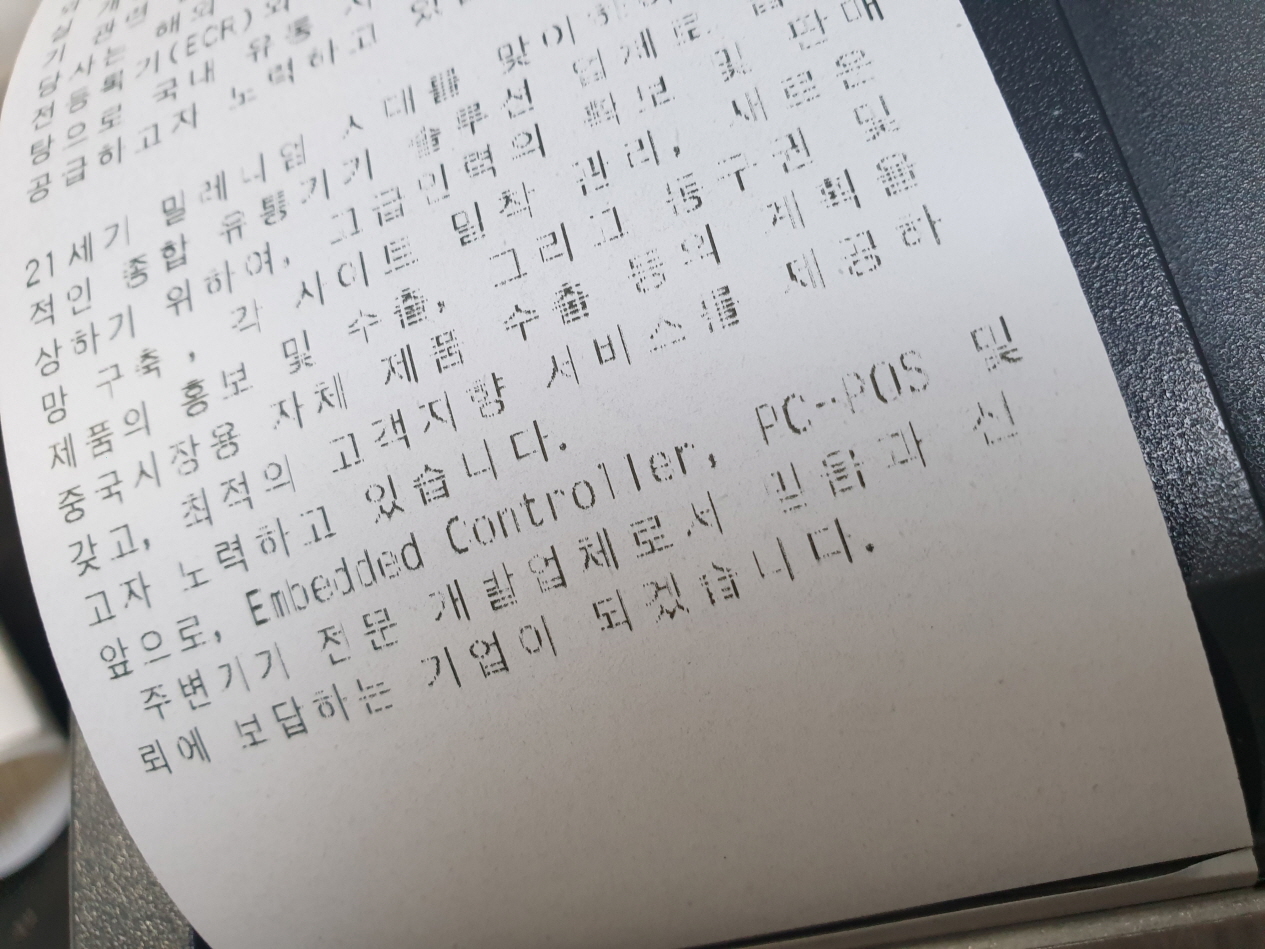 기(ECR)와
전등록
으로 국내 유통
공급하고자 노력하고
21세기 밀레니엄 시대를 맞이하여
적인 종합 유통기기 솔루션 업체로
상하기 위하여, 고급인력의 확보 및 판매
망 구축, 각 사이트 밀착 관리, 새로운
제품의 홍보 및 수출, 그리고 동구권 및
중국시장용 자체 제품 수출 등의 계획을
갖고, 최적의 고객지향 서비스를 제공하
고자 노력하고 있습니다.
앞으로, Embedded Controller, PC-POS 및
주변기기 전문 개발업체로서 믿음과 신
뢰에 보답하는 기업이 되겠습니다.